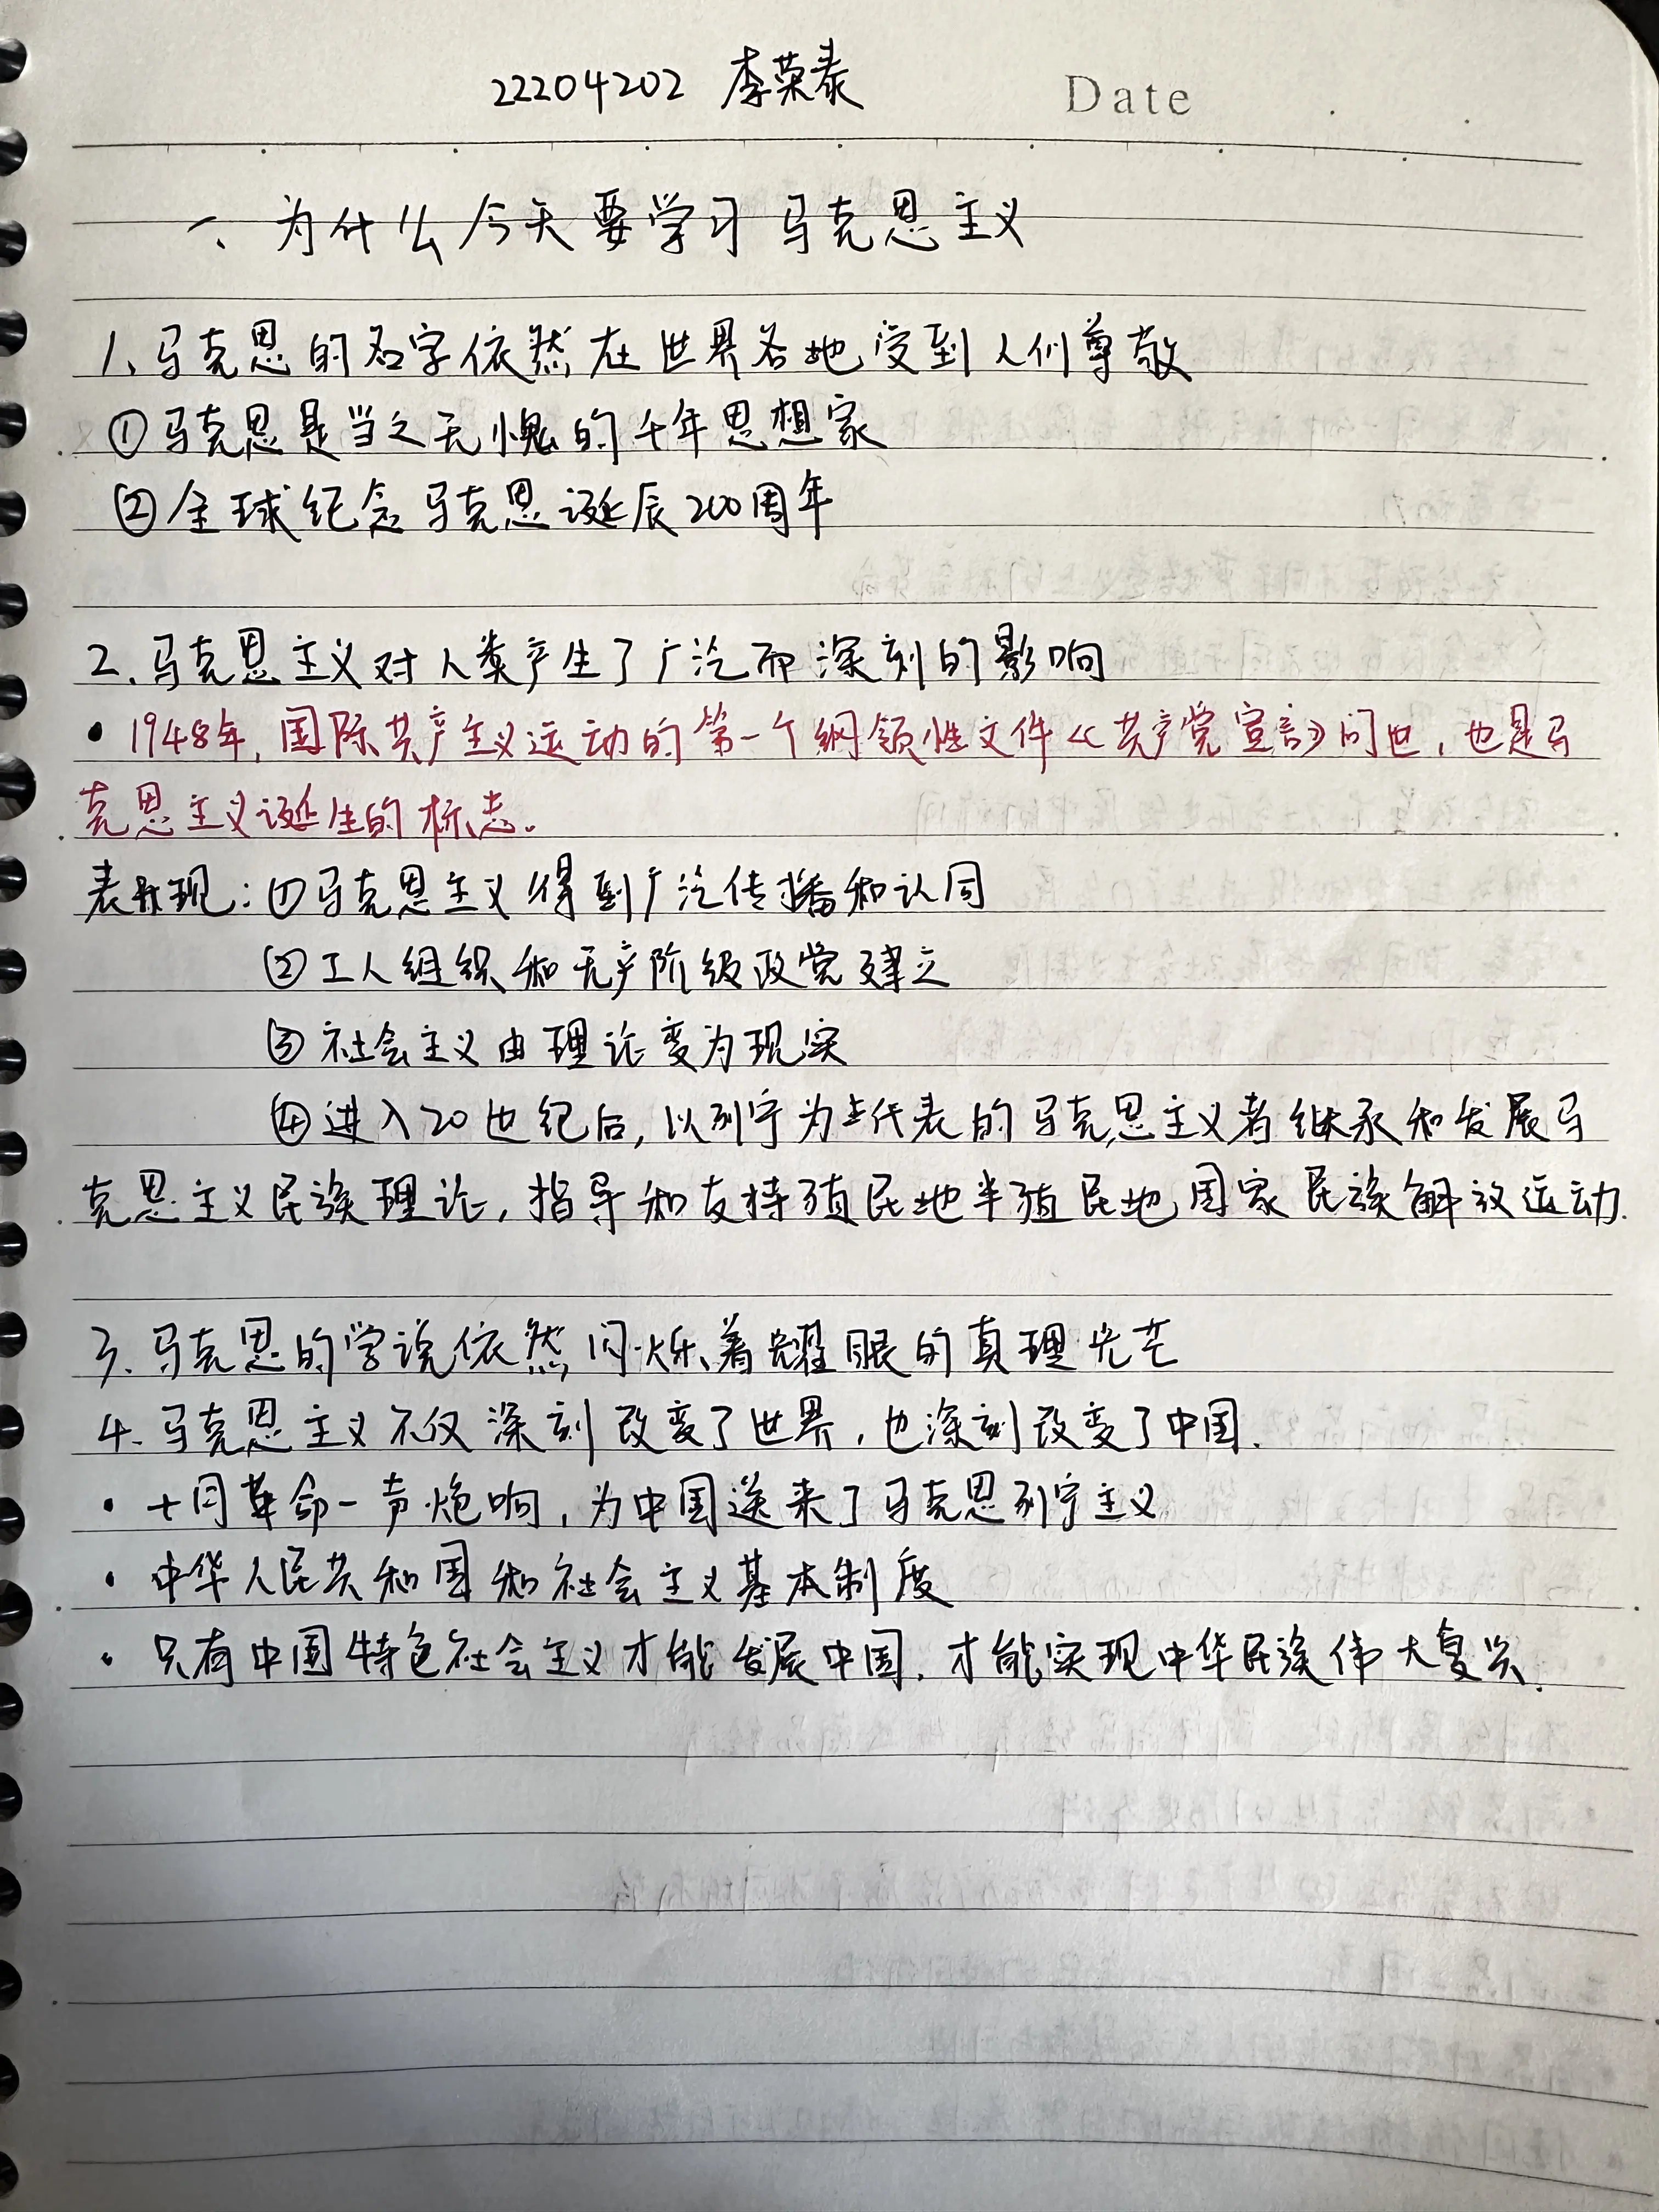 22204202 李荣泰 Date
一、为什么今天要学习马克思主义
1、马克思的名字依然在世界各地受到人们尊敬
①马克思是当之无愧的千年思想家
②全球纪念马克思诞辰200周年
2、马克思主义对人类产生了广泛而深刻的影响
• 1948年,国际共产主义运动的第一个纲领性文件《共产党宣言》问世,也是马
克思主义诞生的标志。
表现:①马克思主义得到广泛传播和认同
②工人组织和无产阶级政党建立
③社会主义由理论变为现实
④进入20世纪后,以列宁为代表的马克思主义者继承和发展马
克思主义民族理论,指导和支持殖民地半殖民地国家民族解放运动.
3、马克思的学说依然闪烁着耀眼的真理光芒
4、马克思主义不仅深刻改变了世界,也深刻改变了中国.
• 十月革命一声炮响,为中国送来了马克思列宁主义
• 中华人民共和国和社会主义基本制度
• 只有中国特色社会主义才能发展中国,才能实现中华民族伟大复兴.